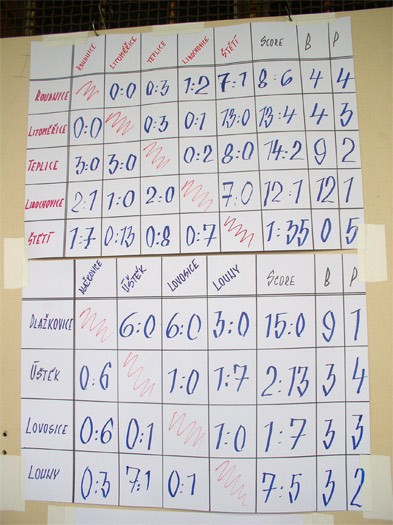 ROUDNICE LITOMĚŘICE TEPLICE LIBOCHOVICE ŠTĚTÍ SCORE B P
ROUDNICE 0:0 0:3 1:2 7:1 8:6 4 4
LITOMĚŘICE 0:0 0:3 0:1 13:0 13:4 4 3
TEPLICE 3:0 3:0 0:2 8:0 14:2 9 2
LIBOCHOVICE 2:1 1:0 2:0 7:0 12:1 12 1
ŠTĚTÍ 1:7 0:13 0:8 0:7 1:35 0 5
ÚŠTĚK LOVOSICE LOUNY SCORE B P
DLAŽKOVICE 6:0 6:0 3:0 15:0 9 1
ÚŠTĚK 0:6 1:0 1:7 2:13 3 4
LOVOSICE 0:6 0:1 1:0 1:7 3 3
LOUNY 0:3 7:1 0:1 7:5 3 2